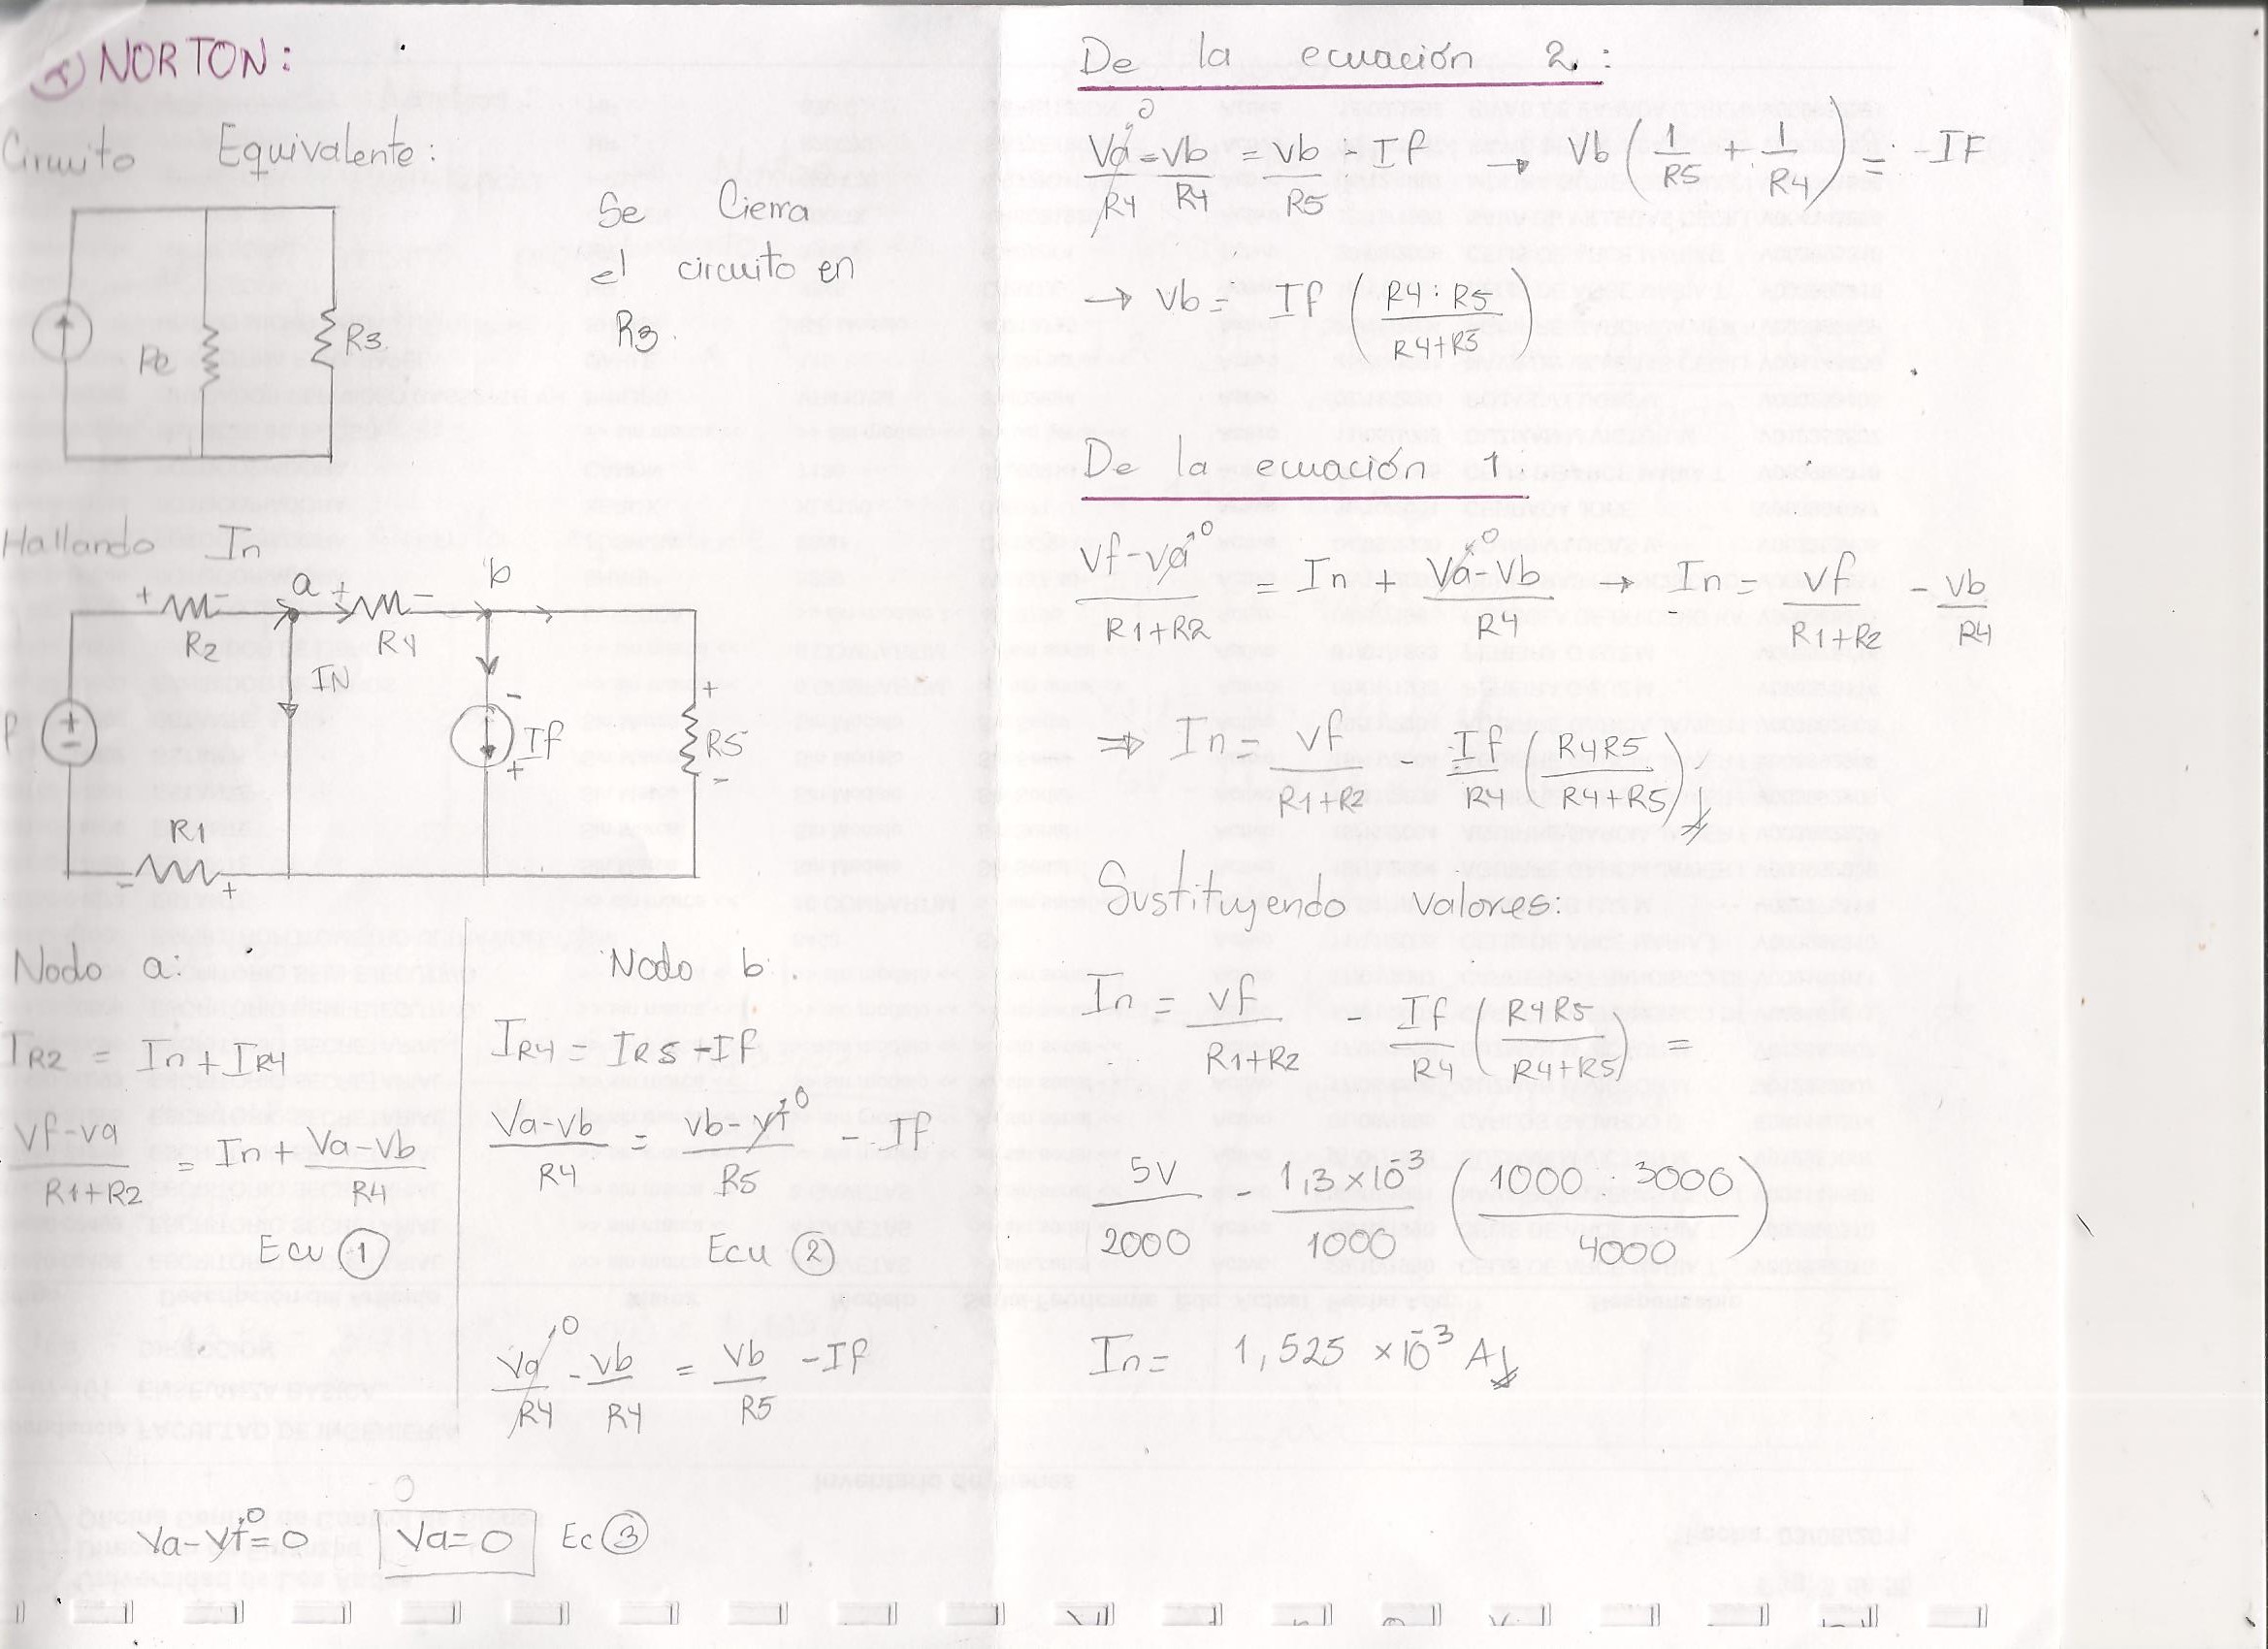 A) NORTON:
Circuito Equivalente:
Se Cierra
el circuito en
R3.
Re
R3
Hallando In
+ - a + - b
R2 R4
IN
-
If
+
+
R5
-
+
-
R1
- +
Nodo a:
IR2 = In + IR4
(Vf-Va)/(R1+R2) = In + (Va-Vb)/R4
Ecu ①
Nodo b:
IR4 = IR5 - If
(Va-Vb)/R4 = (Vb-Vt↗0)/R5 - If
Ecu ②
Va↗0/R4 - Vb/R4 = Vb/R5 - If
Va-Vt↗0=0 Va=0 Ec ③
De la ecuación 2.:
Va↗0/R4 = Vb/R4 = Vb/R5 - If → Vb (1/R5 + 1/R4) = -IF
→ Vb = If ((R4·R5)/(R4+R5))
De la ecuación 1:
(Vf-Va↗0)/(R1+R2) = In + (Va↗0-Vb)/R4 → In = Vf/(R1+R2) - Vb/R4
⇒ In = Vf/(R1+R2) - If/R4 (R4R5/(R4+R5))
Sustituyendo valores:
In = Vf/(R1+R2) - If/R4 (R4R5/(R4+R5)) =
5V/2000 - 1,3×10⁻³/1000 (1000·3000/4000)
In = 1,525 ×10⁻³ A